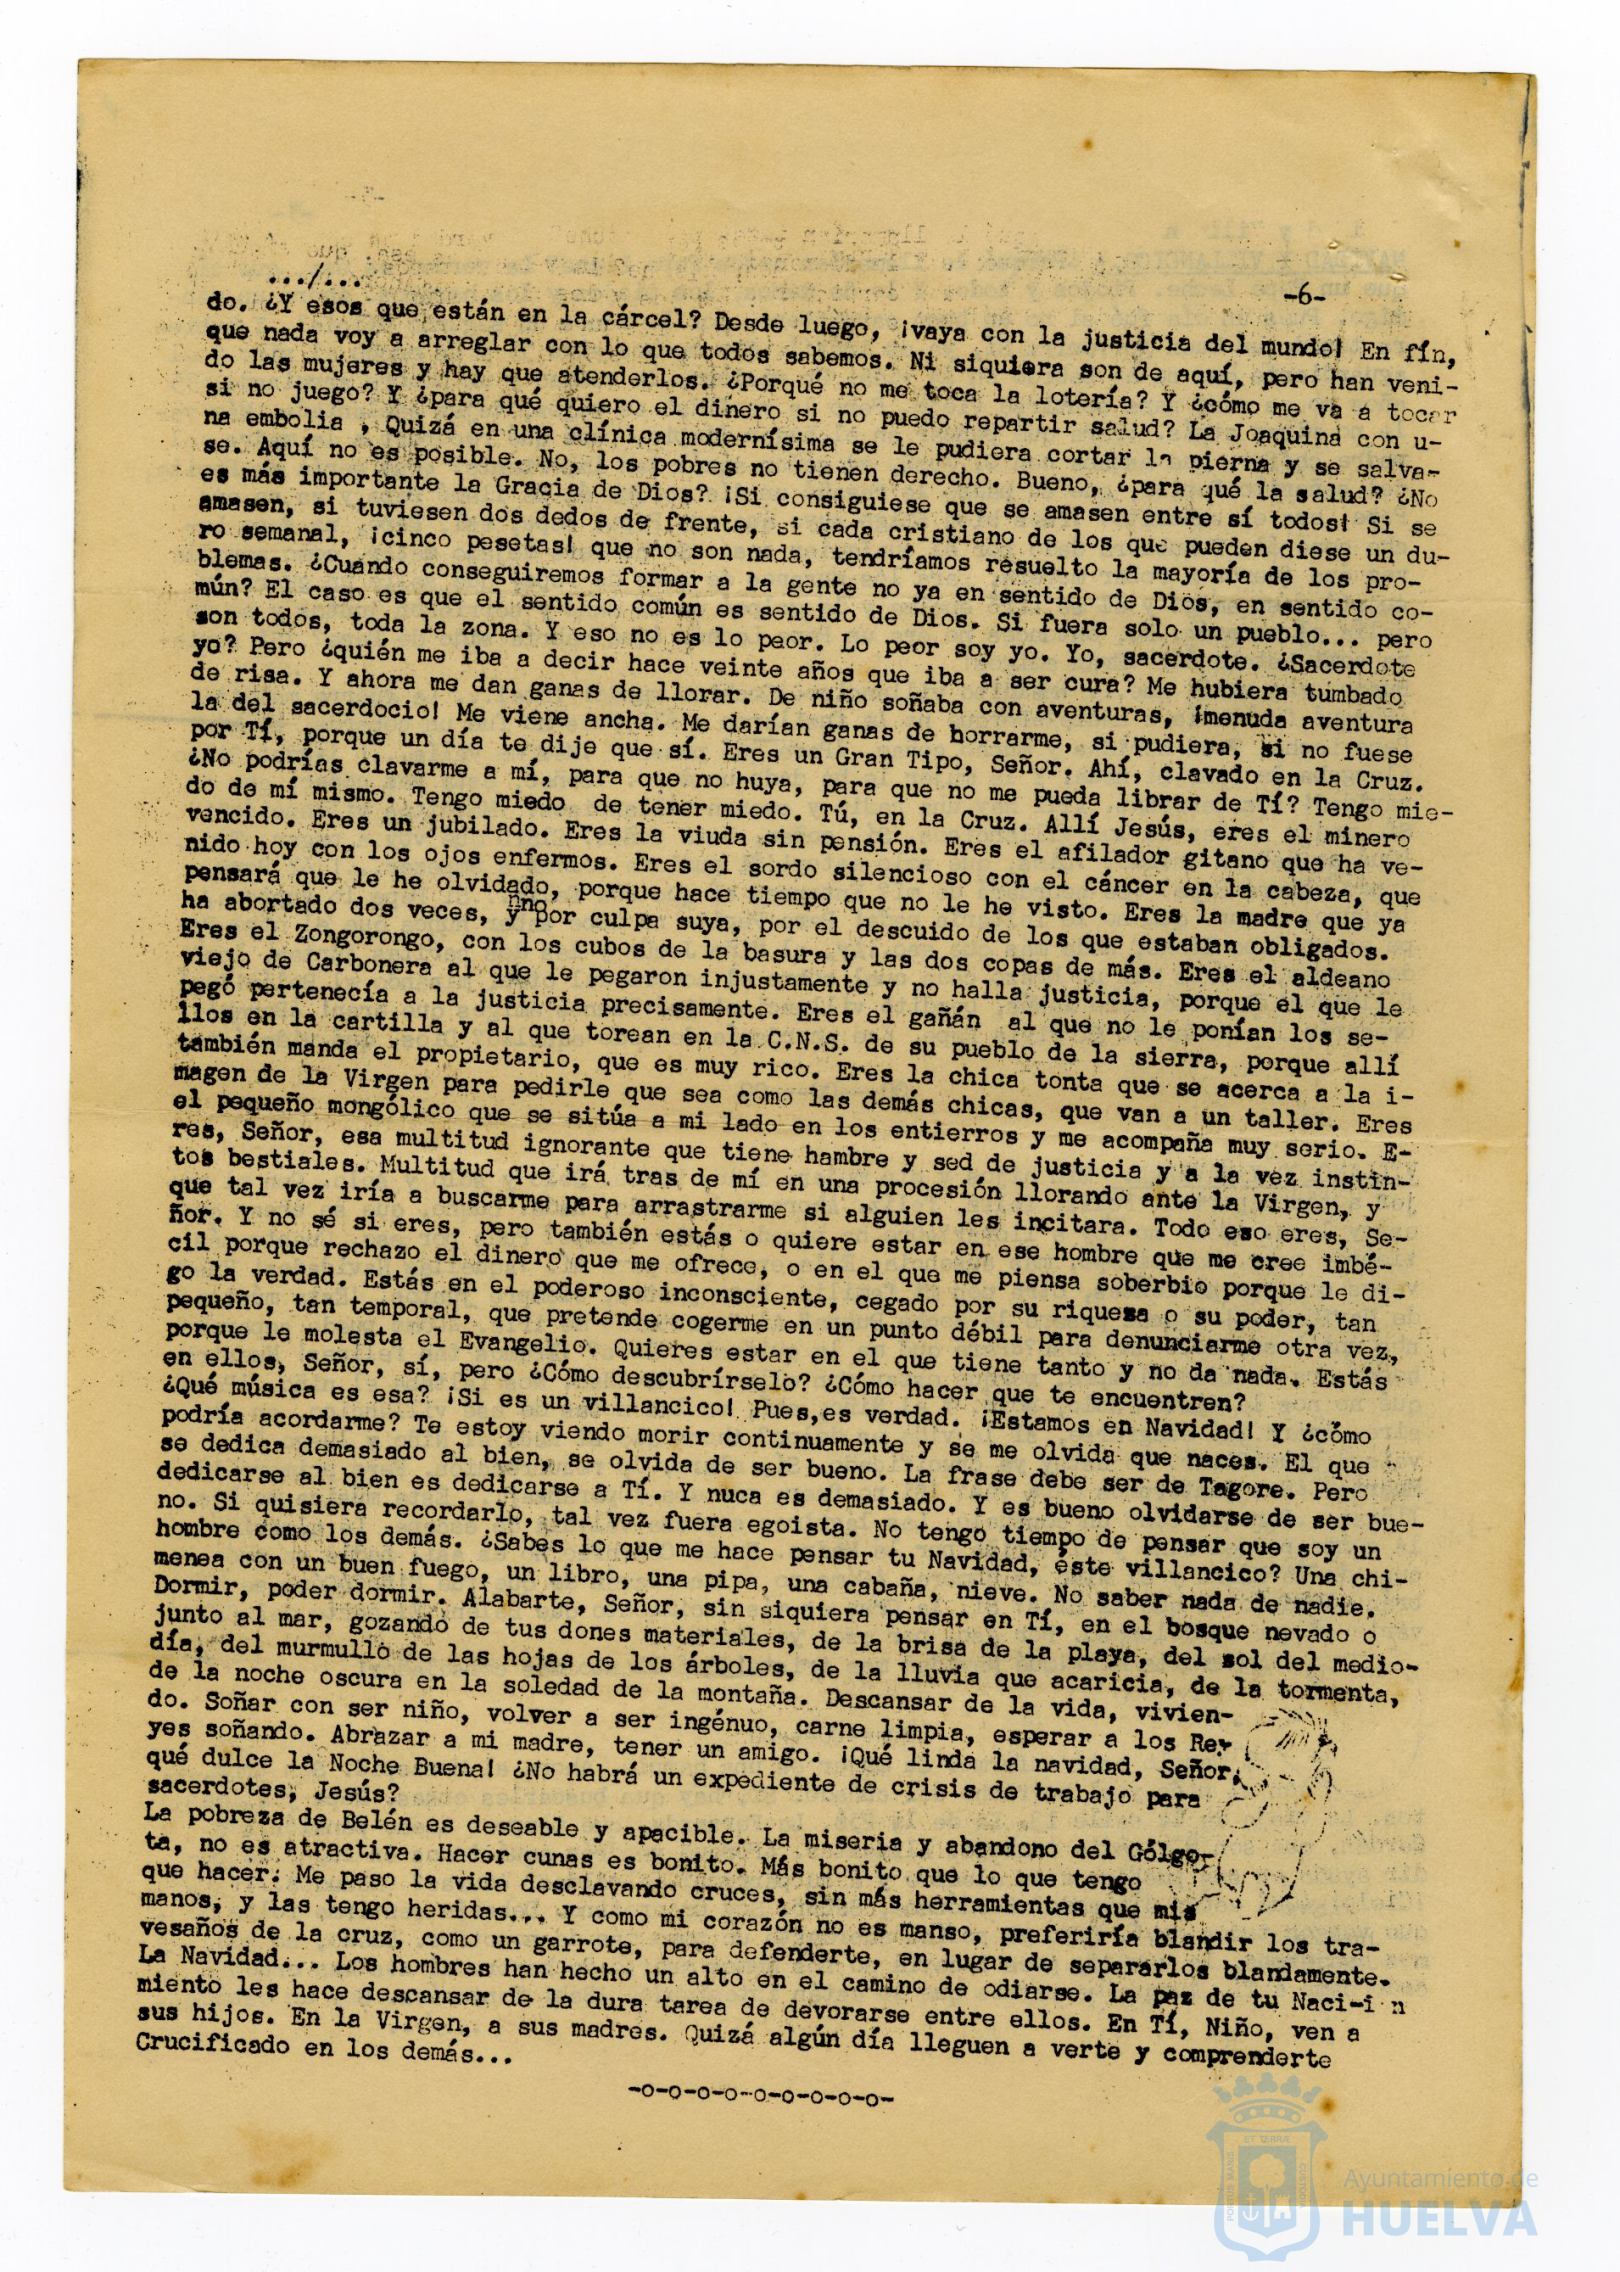 .../...
-6-
do. ¿Y esos que están en la cárcel? Desde luego, ¡vaya con la justicia del mundo! En fín,
que nada voy a arreglar con lo que todos sabemos. Ni siquiera son de aquí, pero han veni-
do las mujeres y hay que atenderlos. ¿Porqué no me toca la lotería? Y ¿cómo me va a tocar
si no juego? Y ¿para qué quiero el dinero si no puedo repartir salud? La Joaquina con u-
na embolia , Quizá en una clínica modernísima se le pudiera cortar la pierna y se salva-
se. Aquí no es posible. No, los pobres no tienen derecho. Bueno, ¿para qué la salud? ¿No
es más importante la Gracia de Dios? ¡Si consiguiese que se amasen entre sí todos! Si se
amasen, si tuviesen dos dedos de frente, si cada cristiano de los que pueden diese un du-
ro semanal, ¡cinco pesetas! que no son nada, tendríamos resuelto la mayoría de los pro-
blemas. ¿Cuándo conseguiremos formar a la gente no ya en sentido de Dios, en sentido co-
mún? El caso es que el sentido común es sentido de Dios. Si fuera solo un pueblo... pero
son todos, toda la zona. Y eso no es lo peor. Lo peor soy yo. Yo, sacerdote. ¿Sacerdote
yo? Pero ¿quién me iba a decir hace veinte años que iba a ser cura? Me hubiera tumbado
de risa. Y ahora me dan ganas de llorar. De niño soñaba con aventuras, ¡menuda aventura
la del sacerdocio! Me viene ancha. Me darían ganas de borrarme, si pudiera, si no fuese
por Tí, porque un día te dije que sí. Eres un Gran Tipo, Señor. Ahí, clavado en la Cruz.
¿No podrías clavarme a mí, para que no huya, para que no me pueda librar de Tí? Tengo mie-
do de mí mismo. Tengo miedo de tener miedo. Tú, en la Cruz. Allí Jesús, eres el minero
vencido. Eres un jubilado. Eres la viuda sin pensión. Eres el afilador gitano que ha ve-
nido hoy con los ojos enfermos. Eres el sordo silencioso con el cáncer en la cabeza, que
pensará que le he olvidado, porque hace tiempo que no le he visto. Eres la madre que ya
ha abortado dos veces, y no por culpa suya, por el descuido de los que estaban obligados.
Eres el Zongorongo, con los cubos de la basura y las dos copas de más. Eres el aldeano
viejo de Carbonera al que le pegaron injustamente y no halla justicia, porque el que le
pegó pertenecía a la justicia precisamente. Eres el gañán al que no le ponían los se-
llos en la cartilla y al que torean en la C.N.S. de su pueblo de la sierra, porque allí
también manda el propietario, que es muy rico. Eres la chica tonta que se acerca a la i-
magen de la Virgen para pedirle que sea como las demás chicas, que van a un taller. Eres
el pequeño mongólico que se sitúa a mi lado en los entierros y me acompaña muy serio. E-
res, Señor, esa multitud ignorante que tiene hambre y sed de justicia y a la vez instin-
tos bestiales. Multitud que irá tras de mí en una procesión llorando ante la Virgen, y
que tal vez iría a buscarme para arrastrarme si alguien les incitara. Todo eso eres, Se-
ñor. Y no sé si eres, pero también estás o quiere estar en ese hombre que me cree imbé-
cil porque rechazo el dinero que me ofrece, o en el que me piensa soberbio porque le di-
go la verdad. Estás en el poderoso inconsciente, cegado por su riqueza o su poder, tan
pequeño, tan temporal, que pretende cogerme en un punto débil para denunciarme otra vez,
porque le molesta el Evangelio. Quieres estar en el que tiene tanto y no da nada. Estás
en ellos, Señor, sí, pero ¿Cómo descubrírselo? ¿Cómo hacer que te encuentren?
¿Qué música es esa? ¡Si es un villancico! Pues,es verdad. ¡Estamos en Navidad! Y ¿cómo
podría acordarme? Te estoy viendo morir continuamente y se me olvida que naces. El que
se dedica demasiado al bien, se olvida de ser bueno. La frase debe ser de Tagore. Pero
dedicarse al bien es dedicarse a Tí. Y nuca es demasiado. Y es bueno olvidarse de ser bue-
no. Si quisiera recordarlo, tal vez fuera egoista. No tengo tiempo de pensar que soy un
hombre como los demás. ¿Sabes lo que me hace pensar tu Navidad, éste villancico? Una chi-
menea con un buen fuego, un libro, una pipa, una cabaña, nieve. No saber nada de nadie.
Dormir, poder dormir. Alabarte, Señor, sin siquiera pensar en Tí, en el bosque nevado o
junto al mar, gozando de tus dones materiales, de la brisa de la playa, del sol del medio-
día, del murmullo de las hojas de los árboles, de la lluvia que acaricia, de la tormenta,
de la noche oscura en la soledad de la montaña. Descansar de la vida, vivien-
do. Soñar con ser niño, volver a ser ingénuo, carne limpia, esperar a los Re-
yes soñando. Abrazar a mi madre, tener un amigo. ¡Qué linda la navidad, Señor,
qué dulce la Noche Buena! ¿No habrá un expediente de crisis de trabajo para
sacerdotes, Jesús?
La pobreza de Belén es deseable y apacible. La miseria y abandono del Gólgo-
ta, no es atractiva. Hacer cunas es bonito. Más bonito que lo que tengo
que hacer. Me paso la vida desclavando cruces, sin más herramientas que mis
manos, y las tengo heridas... Y como mi corazón no es manso, preferiría blandir los tra-
vesaños de la cruz, como un garrote, para defenderte, en lugar de separarlos blandamente.
La Navidad... Los hombres han hecho un alto en el camino de odiarse. La paz de tu Naci-i n
miento les hace descansar de la dura tarea de devorarse entre ellos. En Tí, Niño, ven a
sus hijos. En la Virgen, a sus madres. Quizá algún día lleguen a verte y comprenderte
Crucificado en los demás...
-o-o-o-o-o-o-o-o-o-
PORTUS MARIS
ET TERRÆ
CUSTODIA
Ayuntamiento de
HUELVA